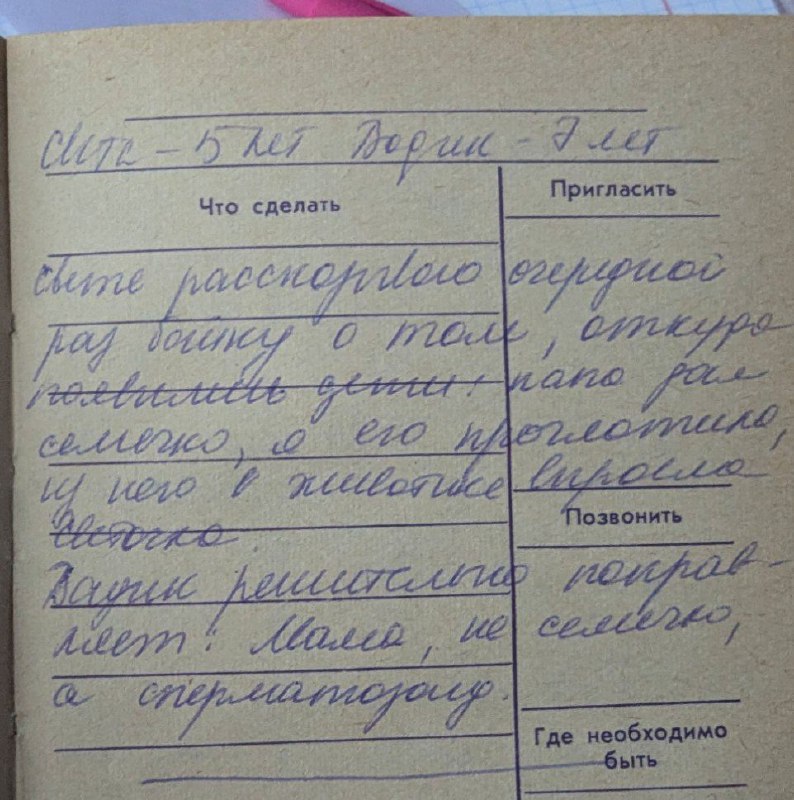 Света – 5 лет Вадик – 7 лет
Что сделать
Пригласить
Свете рассказываю очередной
раз байку о том, откуда
появились дети: папа дал
семечко, я его проглотила,
из него в животике выросла
Светочка
Вадик решительно поправ-
ляет: Мама, не семечко,
а сперматозоид.
Позвонить
Где необходимо
быть